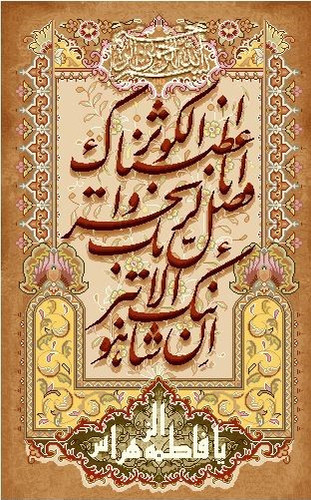 بسم الله الرحمن الرحیم
انا اعطیناک الکوثر
فصل لربک وانحر
ان شانئک هو الابتر
یا فاطمة الزهراس